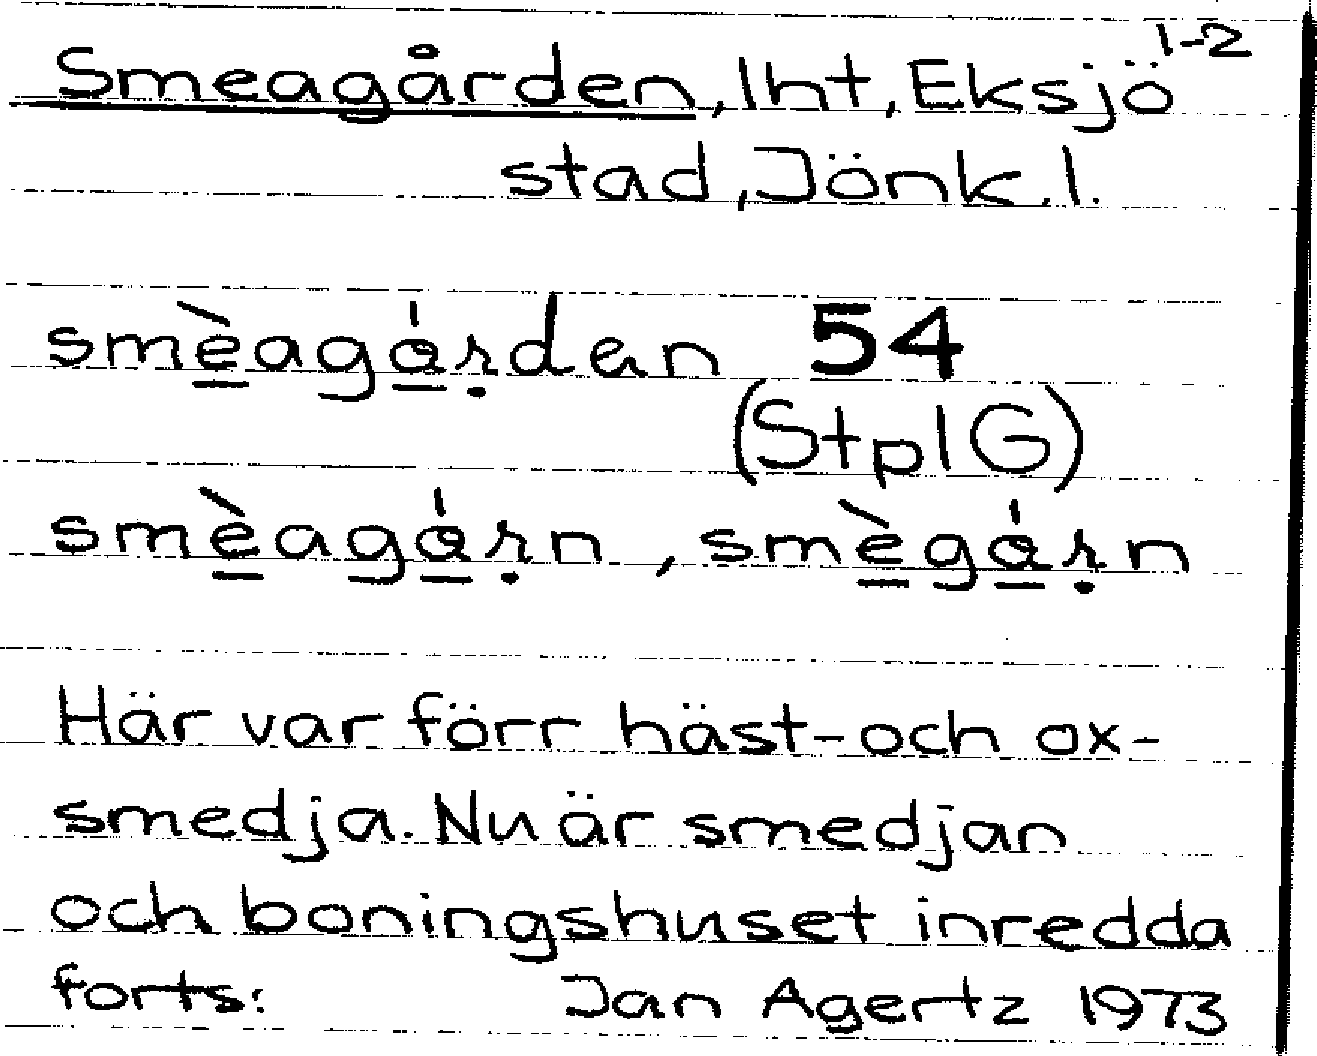 Smeagården, lht, Eksjö 1-2
stad, Jönk. l.
smèagårdən 54
(StplG)
smèagårn, smègårn
Här var förr häst- och ox-
smedja. Nu är smedjan
och boningshuset inredda
forts: Jan Agertz 1973